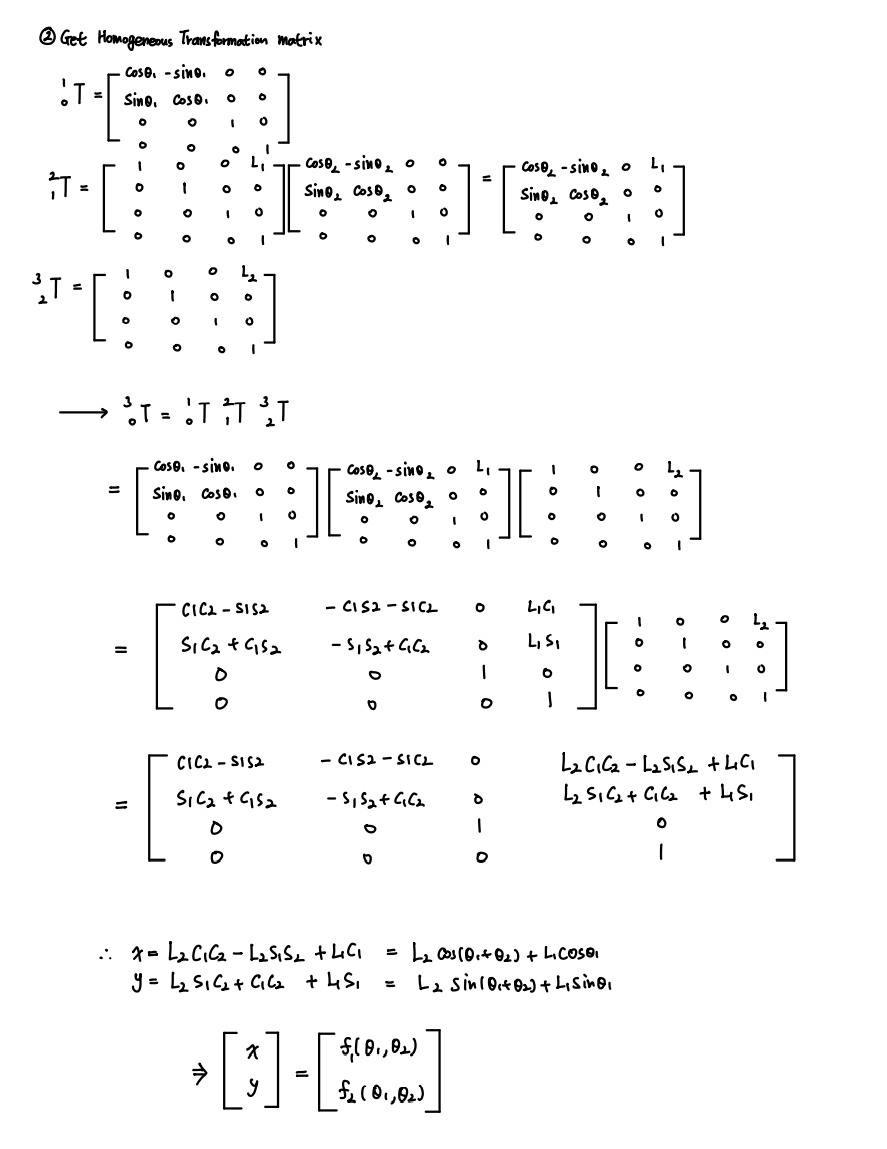 ② Get Homogeneous Transformation matrix
¹₀T = [ cosθ₁ -sinθ₁ 0 0
sinθ₁ cosθ₁ 0 0
0 0 1 0
0 0 0 1 ]
²₁T = [ 1 0 0 L₁ ] [ cosθ₂ -sinθ₂ 0 0 ] = [ cosθ₂ -sinθ₂ 0 L₁ ]
[ 0 1 0 0 ] [ sinθ₂ cosθ₂ 0 0 ] [ sinθ₂ cosθ₂ 0 0 ]
[ 0 0 1 0 ] [ 0 0 1 0 ] [ 0 0 1 0 ]
[ 0 0 0 1 ] [ 0 0 0 1 ] [ 0 0 0 1 ]
³₂T = [ 1 0 0 L₂
0 1 0 0
0 0 1 0
0 0 0 1 ]
→ ³₀T = ¹₀T ²₁T ³₂T
= [ cosθ₁ -sinθ₁ 0 0 ] [ cosθ₂ -sinθ₂ 0 L₁ ] [ 1 0 0 L₂ ]
[ sinθ₁ cosθ₁ 0 0 ] [ sinθ₂ cosθ₂ 0 0 ] [ 0 1 0 0 ]
[ 0 0 1 0 ] [ 0 0 1 0 ] [ 0 0 1 0 ]
[ 0 0 0 1 ] [ 0 0 0 1 ] [ 0 0 0 1 ]
= [ C1C2 - S1S2 - C1S2 - S1C2 0 L₁C₁ ] [ 1 0 0 L₂ ]
[ S₁C₂ + C₁S₂ - S₁S₂ + C₁C₂ 0 L₁S₁ ] [ 0 1 0 0 ]
[ 0 0 1 0 ] [ 0 0 1 0 ]
[ 0 0 0 1 ] [ 0 0 0 1 ]
= [ C1C2 - S1S2 - C1S2 - S1C2 0 L₂C₁C₂ - L₂S₁S₂ + L₁C₁
S₁C₂ + C₁S₂ - S₁S₂ + C₁C₂ 0 L₂S₁C₂ + C₁C₂ + L₁S₁
0 0 1 0
0 0 0 1 ]
∴ x = L₂C₁C₂ - L₂S₁S₂ + L₁C₁ = L₂ cos(θ₁+θ₂) + L₁cosθ₁
y = L₂S₁C₂ + C₁C₂ + L₁S₁ = L₂ sin(θ₁+θ₂) + L₁sinθ₁
⇒ [ x ] = [ f₁(θ₁,θ₂) ]
[ y ] [ f₂(θ₁,θ₂) ]